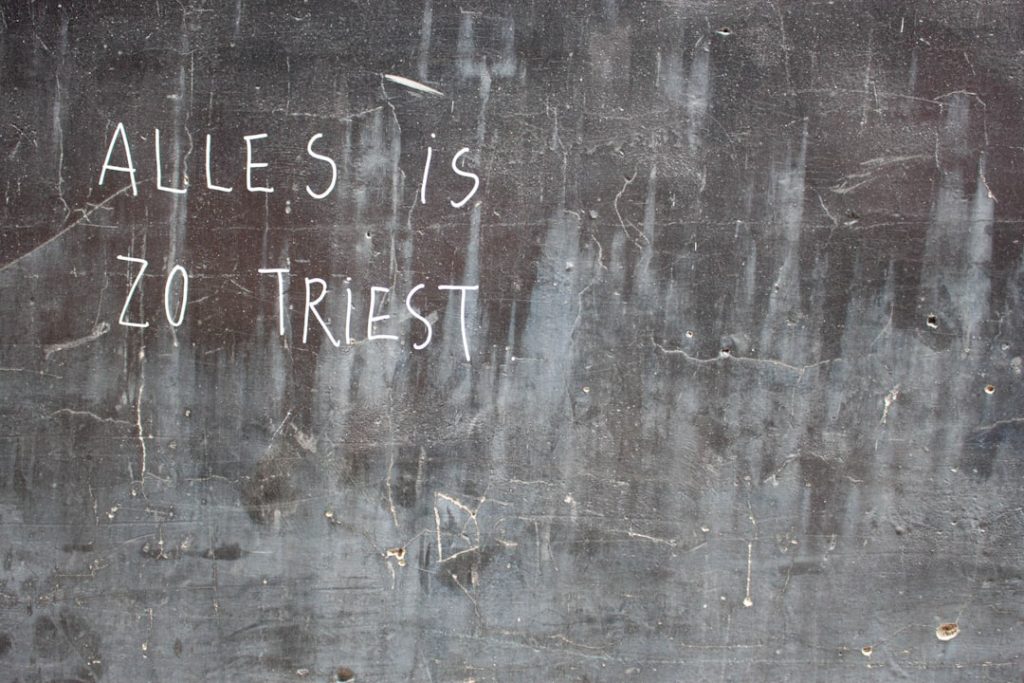 ALLES iS
ZO TRiEST